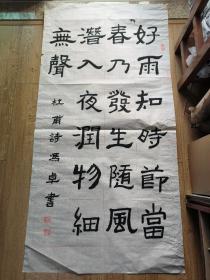 好雨知時節當
春乃發生隨風
潛入夜潤物細
無聲
杜甫詩馮卓書